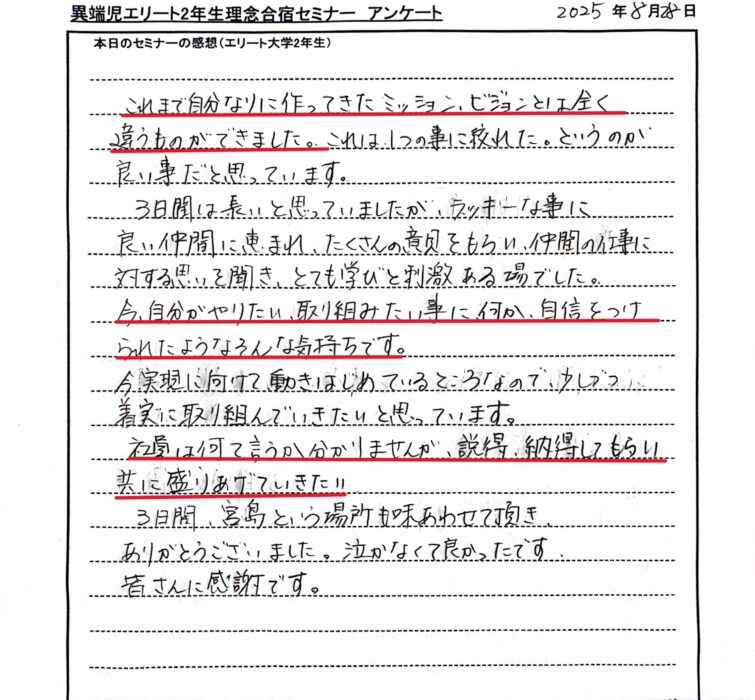 異端児エリート2年生理念合宿セミナー　アンケート
2025 年 8 月 28 日
本日のセミナーの感想（エリート大学2年生）
これまで自分なりに作ってきたミッション、ビジョンとは全く
違うものができました。これは1つの事に絞れた。というのが
良い事だと思っています。
3日間は長いと思っていましたが、ラッキーな事に
良い仲間に恵まれ、たくさんの意見をもらい、仲間の仕事に
対する思いを聞き、とても学びと刺激ある場でした。
今、自分がやりたい、取り組みたい事に何か、自信をつけ
られたようなそんな気持ちです。
今実現に向けて動きはじめているところなので、少しづつ
着実に取り組んでいきたいと思っています。
社員は何て言うか分かりませんが、説得、納得してもらい
共に盛りあげていきたい
3日間、宮島という場所も味あわせて頂き、
ありがとうございました。泣かなくて良かったです。
皆さんに感謝です。